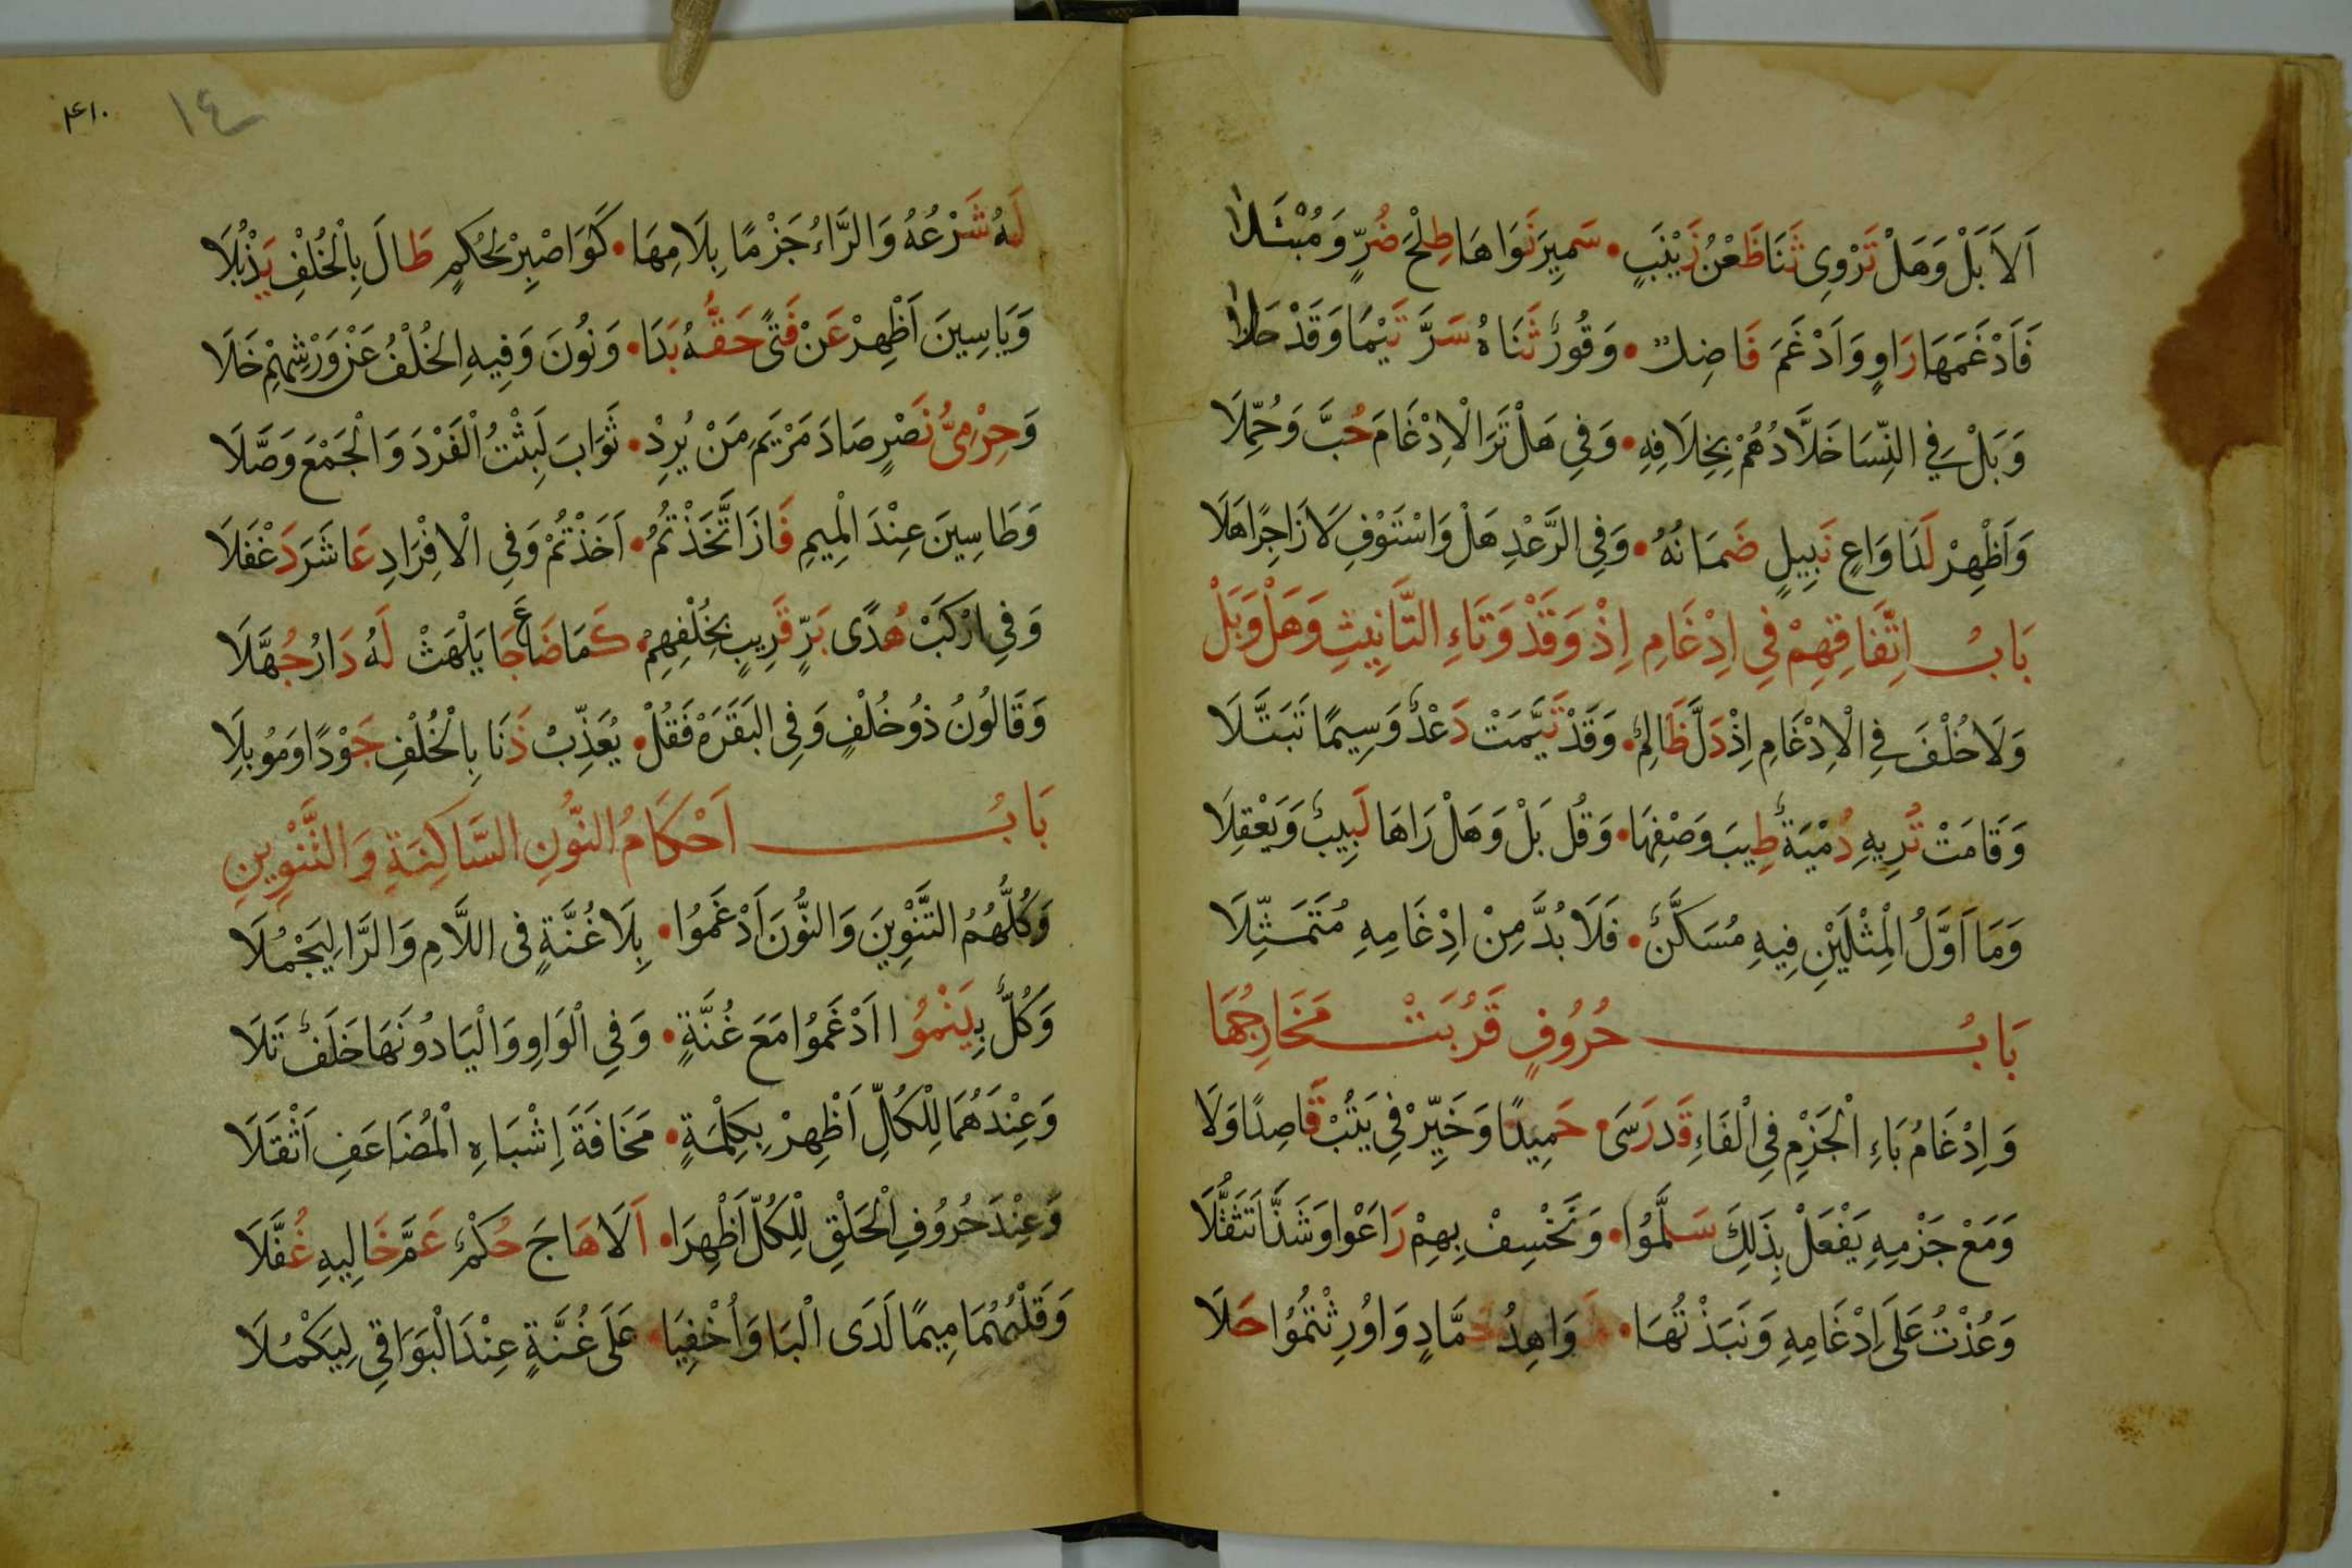 اَلَا بَلْ وَهَلْ تَرْوِى ثَنَا ظَعْنُ زَيْنَبٍ • سَمِيرَ نَوَاهَا طِلْحَ ضُرٍّ وَمُبْتَلَا
فَاَدْغَمَهَا رَاوٍ وَاَدْغَمَ فَاضِلٌ • وَقُورٌ ثَنَاهُ سَرَّ تَيْمًا وَقَدْ حَلَا
وَبَلْ فِي النِّسَا خَلَّادُهُمْ بِخِلَافِهِ • وَفِي هَلْ تَرَا الْاِدْغَامَ حُبَّ وَحُمِّلَا
وَاَظْهِرْ لَدَا وَاعٍ نَبِيلٍ ضَمَانُهُ • وَفِي الرَّعْدِ هَلْ وَاسْتَوْفِ لَا زَاجِرًا هَلَا
بَابُ اِتِّفَاقِهِمْ فِي اِدْغَامِ اِذْ وَقَدْ وَتَاءِ التَّانِيثِ وَهَلْ وَبَلْ
وَلَا خُلْفَ فِي الْاِدْغَامِ اِذْ دَلَّ ظَالِمٌ • وَقَدْ تَيَّمَتْ دَعْدٌ وَسِيمًا تَبَتَّلَا
وَقَامَتْ تُرِيهِ دُمْيَةٌ طِيبَ وَصْفِهَا • وَقُل بَلْ وَهَلْ رَاهَا لَبِيبٌ وَيَعْقِلَا
وَمَا اَوَّلُ الْمِثْلَيْنِ فِيهِ مُسَكَّنٌ • فَلَا بُدَّ مِنْ اِدْغَامِهِ مُتَمَثِّلَا
بَابُ حُرُوفٍ قَرُبَتْ مَخَارِجُهَا
وَاِدْغَامُ بَاءِ الْجَزْمِ فِي الْفَاءِ قَد رَسَى • حَمِيدًا وَخَيِّرْ فِي يَتُبْ قَاصِدًا وَلَا
وَمَعْ جَزْمِهِ يَفْعَلْ بِذَلِكَ سَلَّمُوا • وَنَخْسِفْ بِهِمْ رَاعَوْا وَشَذَّا تَثَقُّلَا
وَعُذْتُ عَلَى اِدْغَامِهِ وَنَبَذْتُهَا • شَوَاهِدُ حَمَّادٍ وَاُورِثْتُمُوا حَلَا
٤١٠
١٤
لَهُ شَرْعُهُ وَالرَّاءُ جَزْمًا بِلَامِهَا • كَوَاصْبِرْ لِحُكْمٍ طَالَ بِالْخُلْفِ يَذْبُلَا
وَيَاسِينَ اَظْهِرْ عَنْ فَتًى حَقُّهُ بَدَا • وَنُونَ وَفِيهِ الخُلْفُ عَنْ وَرْشِهِمْ خَلَا
وَحِرْمِىُّ نَصْرٍ صَادَ مَرْيَمِ مَنْ يُرِدْ • ثَوَابَ لَبِثْتُ الْفَرْدَ وَالْجَمْعَ وَصَّلَا
وَطَاسِينَ عِنْدَ الْمِيمِ فَازَ اتَّخَذْتُمُ • اَخَذْتُمْ وَفِي الْافْرَادِ عَاشَرَ دَغْفَلَا
وَفِي ارْكَبْ هُدًى بَرٍّ قَرِيبٍ بِخُلْفِهِمْ • كَمَا ضَاعَ جَا يَلْهَثْ لَهُ دَارُ جُهَّلَا
وَقَالُونُ ذُو خُلْفٍ وَفِي البَقَرَهْ فَقُلْ • يُعَذِّبْ دَنَا بِالْخُلْفِ جَوْدًا وَمُوبِلَا
بَابُ اَحْكَامُ النُّونِ السَّاكِنَةِ وَالتَّنْوِينِ
وَكُلُّهُمُ التَّنْوِينَ وَالنُّونَ اَدْغَمُوا • بِلَا غُنَّةٍ فِي اللَّامِ وَالرَّا لِيَجْمُلَا
وَكُلٌّ بِيَنْمُوا اَدْغَمُوا مَعَ غُنَّةٍ • وَفِي الْوَاوِ وَالْيَا دُونَهَا خَلَفٌ تَلَا
وَعِنْدَهُمَا لِلْكُلِّ اَظْهِرْ بِكِلْمَةٍ • مَخَافَةَ اِشْبَاهِ الْمُضَاعَفِ اَثْقَلَا
وَعِنْدَ حُرُوفِ الْحَلْقِ لِلْكُلِّ اَظْهِرَا • اَلَا هَاجَ حُكْمٌ عَمَّ خَالِيهِ غُفَّلَا
وَقَلْبُهُمَا مِيمًا لَدَى الْبَا وَاُخْفِيَا • عَلَى غُنَّةٍ عِنْدَ الْبَوَاقِي لِيَكْمُلَا